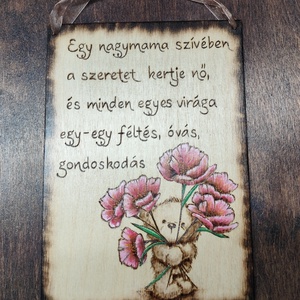 Egy nagymama szívében
a szeretet kertje nő,
és minden egyes virága
egy-egy féltés, óvás,
gondoskodás